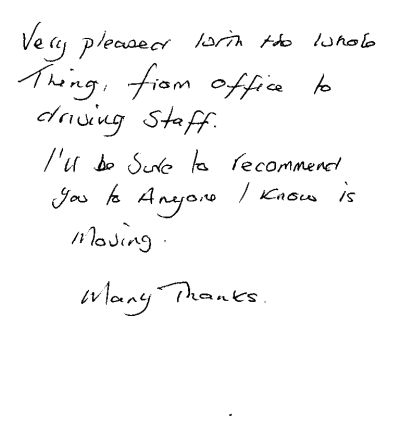 Very pleased with the whole
Thing, from office to
driving staff.
I'll be Sure to recommend
you to Anyone I know is
Moving.
Many Thanks.